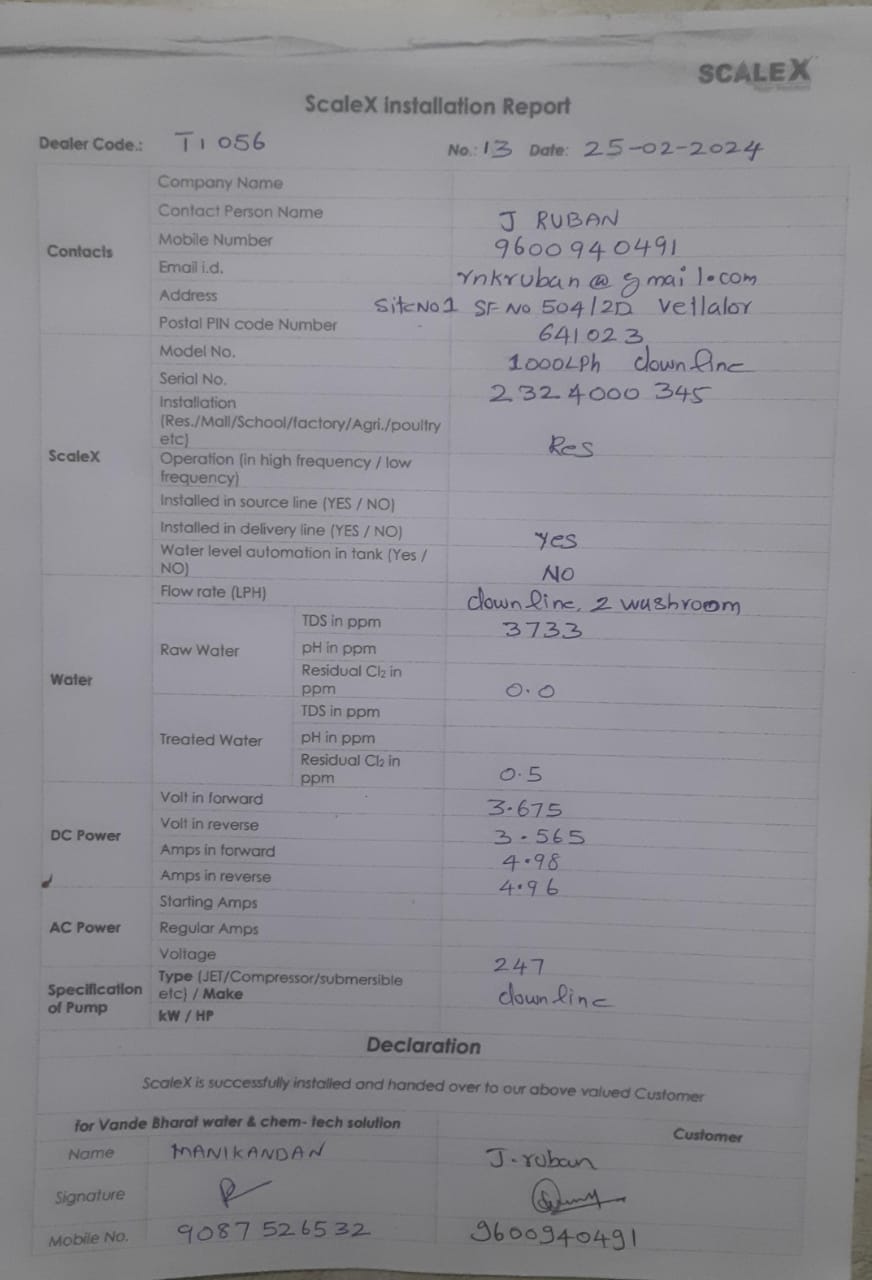 SCALEX
ScaleX installation Report
Dealer Code.: T1 056
No.: 13 Date: 25-02-2024
Contacts
Company Name
Contact Person Name J RUBAN
Mobile Number 9600940491
Email i.d. rnkruban@gmail.com
Address SiteNo1 SF No 504/2D vellalor
Postal PIN code Number 641023
ScaleX
Model No. 1000LPh downline
Serial No. 2324000345
Installation
(Res./Mall/School/factory/Agri./poultry
etc) Res
Operation (in high frequency / low
frequency)
Installed in source line (YES / NO)
Installed in delivery line (YES / NO) yes
Water level automation in tank (Yes /
NO) NO
Water
Flow rate (LPH) downline, 2 washroom
Raw Water
TDS in ppm 3733
pH in ppm
Residual Cl₂ in
ppm 0.0
Treated Water
TDS in ppm
pH in ppm
Residual Cl₂ in
ppm 0.5
DC Power
Volt in forward 3.675
Volt in reverse 3.565
Amps in forward 4.98
Amps in reverse 4.96
AC Power
Starting Amps
Regular Amps
Voltage 247
Specification
of Pump
Type (JET/Compressor/submersible
etc) / Make downline
kW / HP
Declaration
ScaleX is successfully installed and handed over to our above valued Customer
for Vande Bharat water & chem- tech solution
Customer
Name MANIKANDAN J.ruban
Signature
Mobile No. 9087526532 9600940491